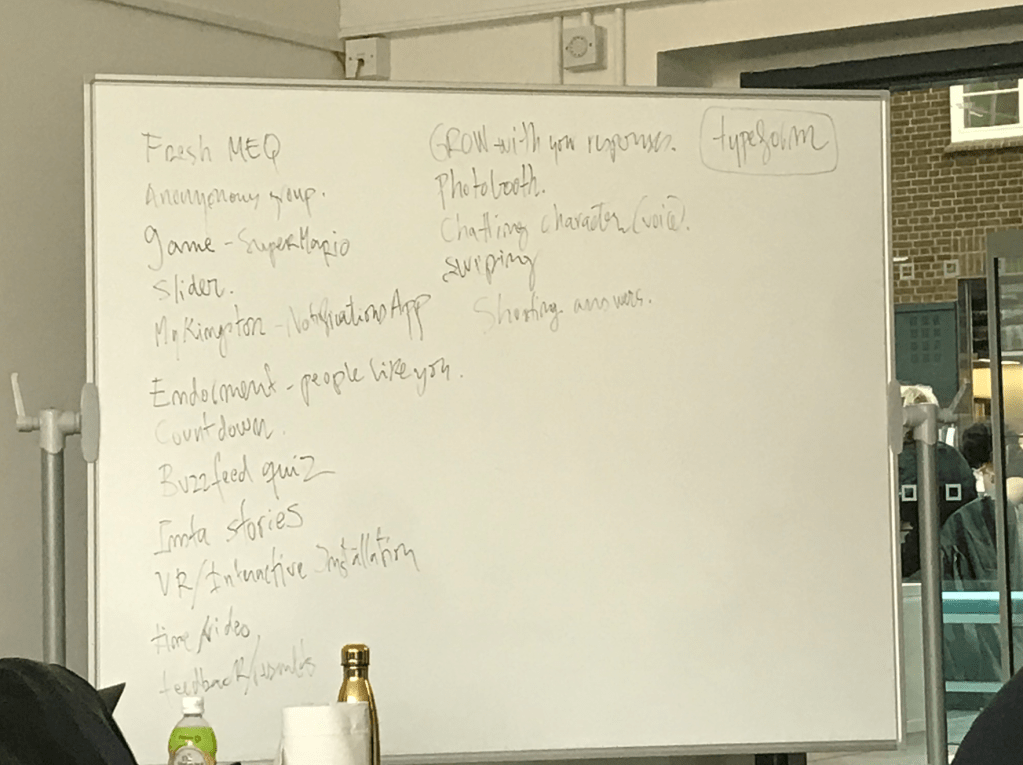 Fresh MEQ
Anonymous group.
game - SuperMario
Slider.
MyKingston - Notifications App
Endorment - people like you.
Countdown.
Buzzfeed quiz
Insta stories
VR/Interactive Installation
time/video
feedback/results
GROW with your responses.
Photobooth.
Chatting character (voice).
swiping
Shooting answers.
typeform